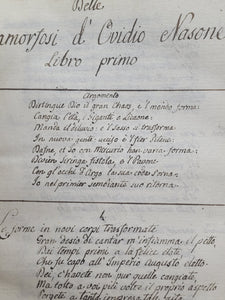 Delle
amorfosi d'Ovidio Nasone
Libro primo
Argomento
Distingue Dio il gran Chaos, e 'l mondo forma:
Cangia l'Età, i Giganti e Licaone:
Manda il diluvio: e i Sassi si trasforma
In nuova gente: uccide l'fier Pitone:
Dafne, et Io, con Mercurio han varia forma:
Divien Siringa fistola, e 'l Pavone
Con gl'occhi d'Argo la sua coda s'orna:
Io nel primier sembiante suo ritorna.
1.
Le forme in novi corpi trasformate
Gran desio di cantar m'infiamma il petto,
Dai tempi primi a la felice etate,
Che fu capo all' Imperio Augusto eletto
Dei, c'havete non pur quelle cangiate,
Ma tolto a voi più volte il proprio aspetto
Porgete a tanta impresa tale aita